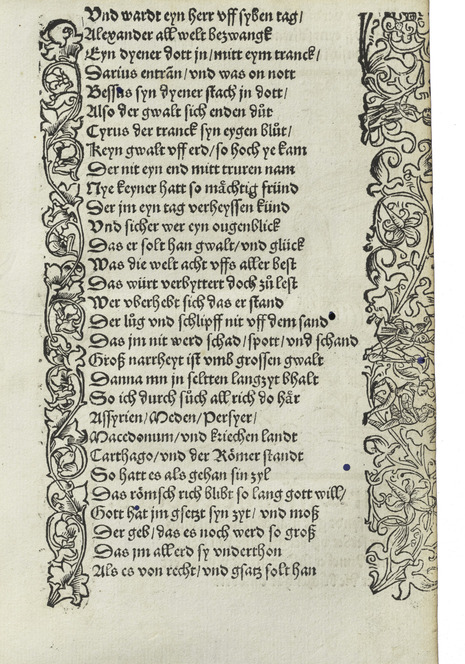 Vnd wardt eyn herr vff syben tag/
Alexander all welt bezwangk
Eyn dyener dott jn/mitt eym tranck/
Darius entran/vnd was on nott
Bessus syn dyener stach jn dott/
Also der gwalt sich enden důt
Cyrus der tranck syn eygen blůt/
Keyn gwalt vff erd/so hoch ye kam
Der nit eyn end mitt truren nam
Nye keyner hatt so mächtig fründ
Der jm eyn tag verheyssen künd
Vnd sicher wer eyn ougenblick
Das er solt han gwalt/vnd glück
Was die welt acht vffs aller best
Das würt verbyttert doch zů lest
Wer vberhebt sich das er stand
Der lůg vnd schlipff nit vff dem sand
Das jm nit werd schad/spott/vnd schand
Groß narrheyt ist vmb grossen gwalt
Danna mn jn seltten langzyt bhalt
So ich durch sůch all rich do här
Assyrien/Meden/Persyer/
Macedonum/vnd kriechen landt
Carthago/vnd der Römer standt
So hatt es als gehan sin zyl
Das römsch rich blibt so lang gott will/
Gott hat jm gsetzt syn zyt/vnd moß
Der geb/das es noch werd so groß
Das jm all erd sy vnderthon
Als es von recht/vnd gsatz solt han